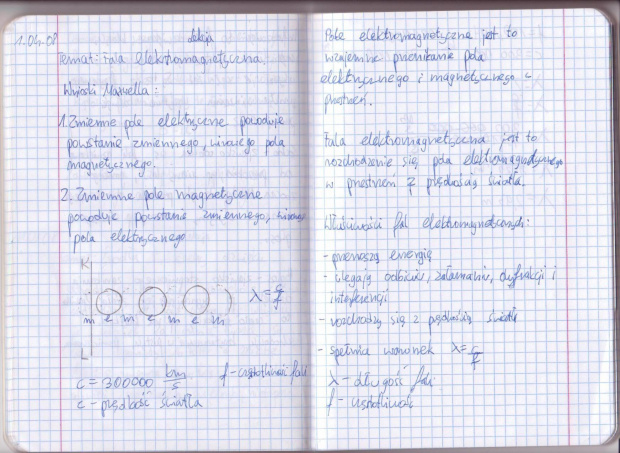 1.04.08
lekcja
Temat: Fala elektromagnetyczna.
Wnioski Maxwella:
1. Zmienne pole elektryczne powoduje
powstanie zmiennego, wirowego pola
magnetycznego.
2. Zmienne pole magnetyczne
powoduje powstanie zmiennego, wirowego
pola elektrycznego
K
m e m e m e m
λ = c/f
L
c = 300000 km/s f - częstotliwość fali
c - prędkość światła
Pole elektromagnetyczne jest to
wzajemne przenikanie pola
elektrycznego i magnetycznego w
przestrzeń.
Fala elektromagnetyczna jest to
rozchodzenie się pola elektromagnetycznego
w przestrzeń z prędkością światła.
Właściwości fal elektromagnetycznych:
- przenoszą energię
- ulegają odbiciu, załamaniu, dyfrakcji i
interferencji
- rozchodzą się z prędkością światła
- spełnia warunek λ = c/f
λ - długość fali
f - częstotliwość